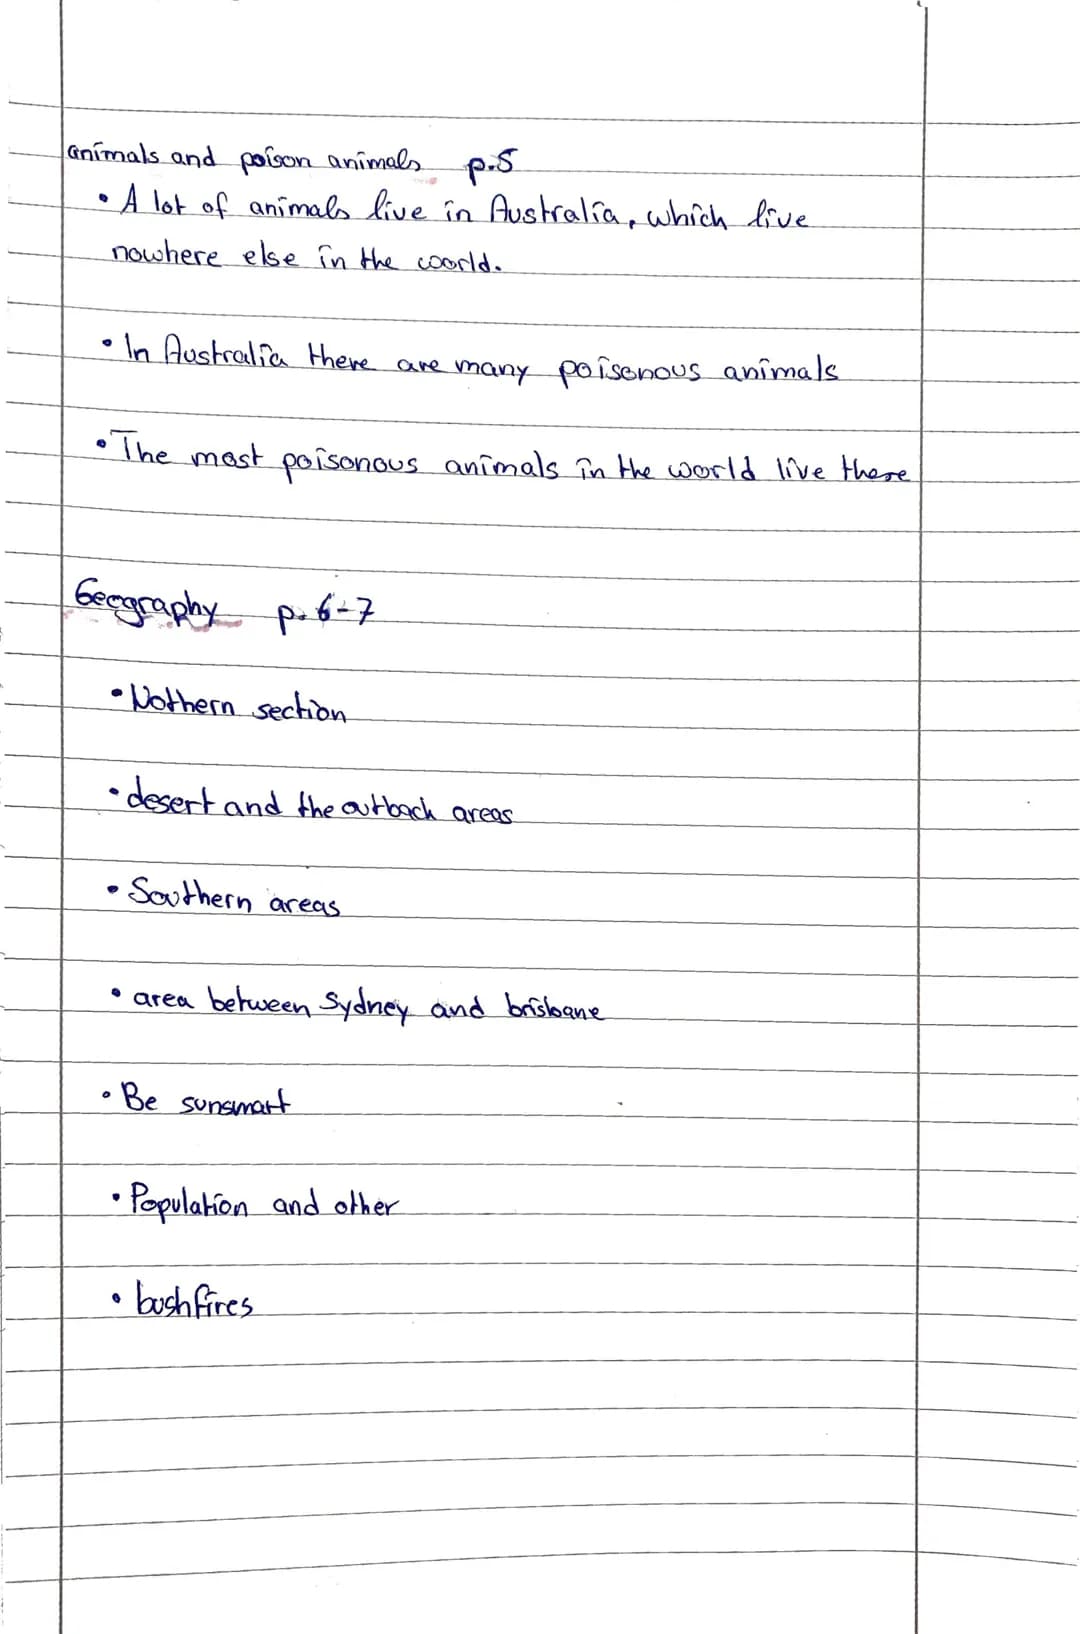 animals and poison animals p.5
• A lot of animals live in Australia, which live
nowhere else in the world.
• In Australia there are many poisonous animals
• The most poisonous animals in the world live there
Geography p. 6-7
• Nothern section
• desert and the outback areas
• Southern areas
• area between Sydney and brisbane
• Be sunsmart
• Population and other
• bushfires